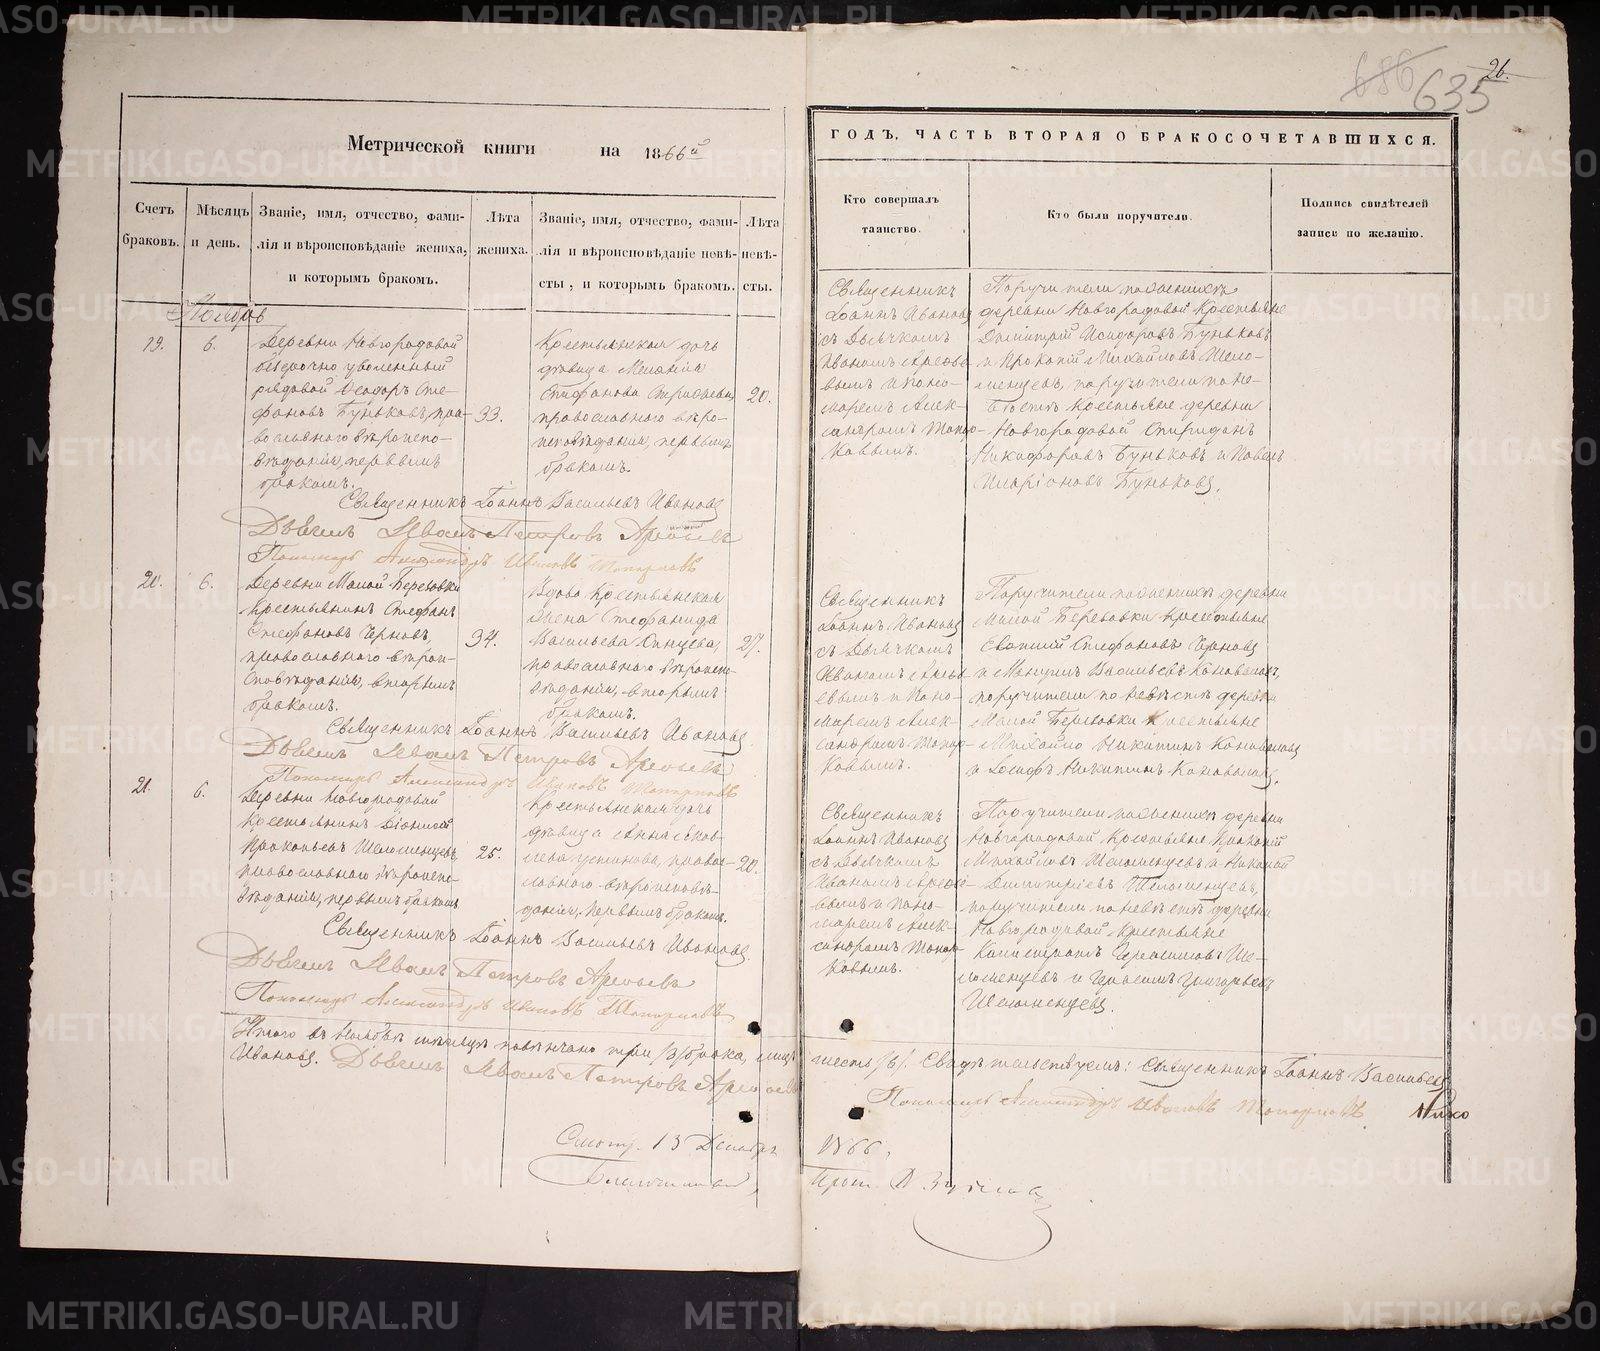 686 635
26.
Метрической книги на 1866й
ГОДЪ, ЧАСТЬ ВТОРАЯ О БРАКОСОЧЕТАВШИХСЯ.
Счетъ браковъ.
Мѣсяцъ и день.
Званіе, имя, отчество, фами-
лія и вѣроисповѣданіе жениха,
и которымъ бракомъ.
Лѣта жениха.
Званіе, имя, отчество, фами-
лія и вѣроисповѣданіе невѣ-
сты, и которымъ бракомъ.
Лѣта невѣ-
сты.
Кто совершалъ
таинство.
Кто были поручители.
Подпись свидѣтелей
записи по желанію.
Ноябрь
19.
6.
Деревни Новгородовой
безсрочно уволенный
рядовой Ѳеодоръ Сте-
фановъ Буньковъ, пра-
вославнаго вѣроиспо-
вѣданія, первымъ
бракомъ.
33.
Крестьянская дочь
дѣвица Меланія
Стефанова
православнаго вѣро-
исповѣданія, первымъ
бракомъ.
20.
Священникъ
Іоаннъ Ивановъ
съ Дьячкомъ
Иваномъ Арефье-
вымъ и Поно-
маремъ Алек-
сандромъ Топор-
ковымъ.
Поручители по женихѣ
деревни Новгородовой Крестьяне
Димитрій Исидоровъ Буньковъ
и Прокопій Михайловъ Шело-
менцевъ, поручители по не-
вѣстѣ Крестьяне деревни
Новгородовой Спиридонъ
Никифоровъ Буньковъ и Павелъ
Иларіоновъ Буньковъ.
Священникъ Іоаннъ Васильевъ Ивановъ
Дьячекъ Иванъ Петровъ Арефьевъ
Пономарь Александръ Ивановъ Топорковъ
20.
6.
Деревни Малой Березовки
крестьянинъ Стефанъ
Стефановъ Черновъ,
православнаго вѣрои-
сповѣданія, вторымъ
бракомъ.
34.
Вдова Крестьянская
жена Стефанида
Васильева
православнаго вѣроиспо-
вѣданія, вторымъ
бракомъ.
27.
Священникъ
Іоаннъ Ивановъ
съ Дьячкомъ
Иваномъ Арефь-
евымъ и Поно-
маремъ Алек-
сандромъ Топор-
ковымъ.
Поручители по женихѣ деревни
Малой Березовки Крестьяне
Стефановъ Черновъ
и Васильевъ Коноваловъ,
поручители по невѣстѣ деревни
Малой Березовки Крестьяне
Михайло Никитинъ Коноваловъ
и Іосифъ Никитинъ Коноваловъ.
Священникъ Іоаннъ Васильевъ Ивановъ
Дьячекъ Иванъ Петровъ Арефьевъ
Пономарь Александръ Ивановъ Топорковъ
21.
6.
Деревни Новгородовой
Крестьянинъ Діонисій
Прокопьевъ Шеломенцевъ,
православнаго вѣроиспо-
вѣданія, первымъ бракомъ
25.
Крестьянская дочь
дѣвица Анна Іаков-
лева Устинова, правос-
лавнаго вѣроисповѣ-
данія, первымъ бракомъ.
20.
Священникъ
Іоаннъ Ивановъ
съ Дьячкомъ
Иваномъ Арефье-
вымъ и Поно-
маремъ Алек-
сандромъ Топор-
ковымъ.
Поручители по женихѣ деревни
Новгородовой Крестьяне Прокопій
Михайловъ Шеломенцевъ и Николай
Димитріевъ Шеломенцевъ,
поручители по невѣстѣ деревни
Новгородовой Крестьяне
Калистратъ Герасимовъ Ше-
ломенцевъ и Герасимъ Григорьевъ
Шеломенцевъ.
Священникъ Іоаннъ Васильевъ Ивановъ.
Дьячекъ Иванъ Петровъ Арефьевъ
Пономарь Александръ Ивановъ Топорковъ
Итого въ Ноябрѣ мѣсяцѣ повѣнчано три /3/ брака, лицъ шесть /6/. Свидѣтельствуемъ: Священникъ Іоаннъ Васильевъ
Ивановъ. Дьячекъ Иванъ Петровъ Арефьевъ Пономарь Александръ Ивановъ Топорковъ
Смотр. 13 Декабря 1866,
METRIKI.GASO-URAL.RU